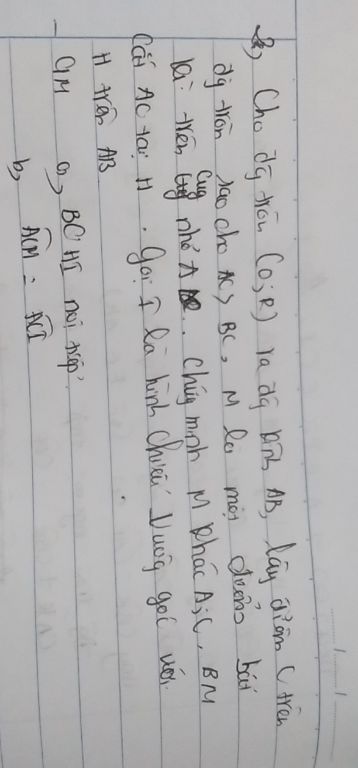 2, Cho đg tròn (O;R) và đg kính AB, lấy điểm C trên
đg tròn sao cho AC > BC, M là một điểm bất
kì trên cung nhỏ A. Chứng minh M khác A;C. BM
cắt AC tại H. Gọi I là hình chiếu vuông góc với
H trên AB
- CM a, BCHI nội tiếp.
b, ACM = ACI